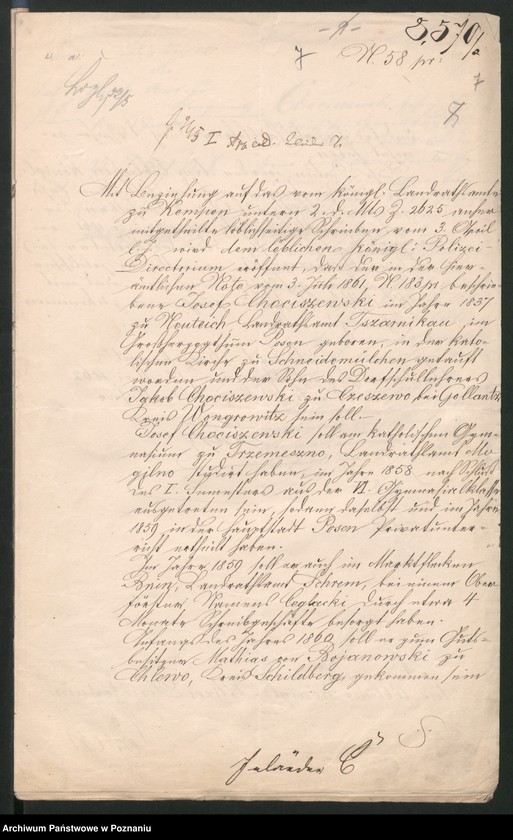 5,570/a
N. 58 pr:
7
7
I
Mit Beziehung auf das vom königl: Landrathsamte
zu Kempen unterm 2. d. Mts Z. 2625 anher
mitgetheilte löbliche Schreiben vom 3. April
l. J. wird dem löblichen Königl: Polizei-
Directorium eröffnet, daß der in der hier-
amtlichen Nota vom 3. Juli 1861, N 183/pr beschrie-
bene Josef Chociszewski im Jahre 1837
zu Neuteich Landrathsamt Tszarnikau, im
Großherzogthum Posen geboren, in der katho-
lischen Kirche zu Schneidemühlchen getauft
worden und der Sohn des Dorfschullehrers
Jakob Chociszewski zu Czeszewo bei Gollantz,
Kreis Wongrowitz sein soll.
Josef Chociszewski soll am katholischen Gym-
nasium zu Trzemeszno, Landrathsamt Mo-
gilno studirt haben, im Jahre 1858 nach Schluß
des I. Semesters aus der VI. Gymnasialklasse
ausgetreten sein, sodann daselbst und im Jahre
1859 in der Hauptstadt Posen Privatunter-
richt ertheilt haben.
Im Jahre 1859 soll er auch im Marktflecken
Landrathsamt Schrem, bei einem Ober-
förster Namens durch etwa 4
Monate Schreibgeschäfte besorgt haben.
Anfangs des Jahres 1860 soll er zum Guts-
besitzer Mathias von Bojanowski zu
Chlewo, Kreis Schildberg, gekommen sein
Archiwum Państwowe w Poznaniu